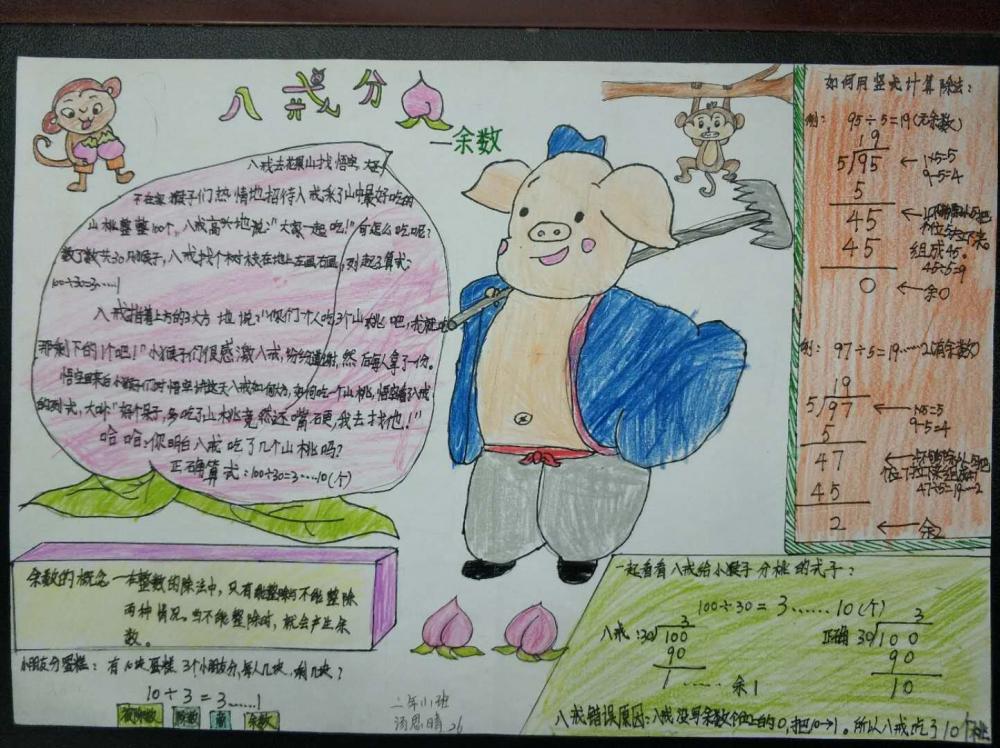 八戒分
一余数
八戒去花果山找悟空,
不在家,猴子们热情地招待八戒采了山中最好吃的
山桃整整100个,八戒高兴地说:"大家一起吃!"可怎么吃呢?
数了数共30只猴子,八戒找个树枝在地上左画右画,列起了算式:
100÷30=3……1
八戒指着上方的3大方地说:"你们一个人吃3个山桃吧,
那剩下的1个吧!"小猴子们很感激八戒,纷纷道谢,然后每人拿了一份。
悟空回来后小猴子们对悟空讲这天八戒如何大方,如何吃一个山桃,悟空看了八戒
的列式,大叫:"好个呆子,多吃了山桃竟然还嘴硬,我去找他!"
哈哈:你明白八戒吃了几个山桃吗?
正确算式:100÷30=3……10(个)
如何用竖式计算除法:
例:95÷5=19(无余数)
19
5 95 ← 1×5=5
9-5=4
5
45 ←
组成45。
45 45÷5=9
0 ← 余0
例:97÷5=19……2(有余数)
19
5 97 ← 1×5=5
9-5=4
5
47 ←
45 47÷5=19……2
2 ← 余2
余数的概念一在整数的除法中,只有能整除与不能整除
两种情况。当不能整除时,就会产生余
数。
小朋友分蛋糕:有10块蛋糕 3个小朋友分,每人几块,剩几块?
10÷3=3……1
被除数 除数 商 余数
二年11班
汤思晴 26
一起看看八戒给小猴子分桃的式子:
100÷30=3……10(个)
八戒:30 100 3
90
1……余1
正确 30 100 3
90
10
八戒错误原因:八戒没写余数个位上的0,把10→1。所以八戒吃了10个桃